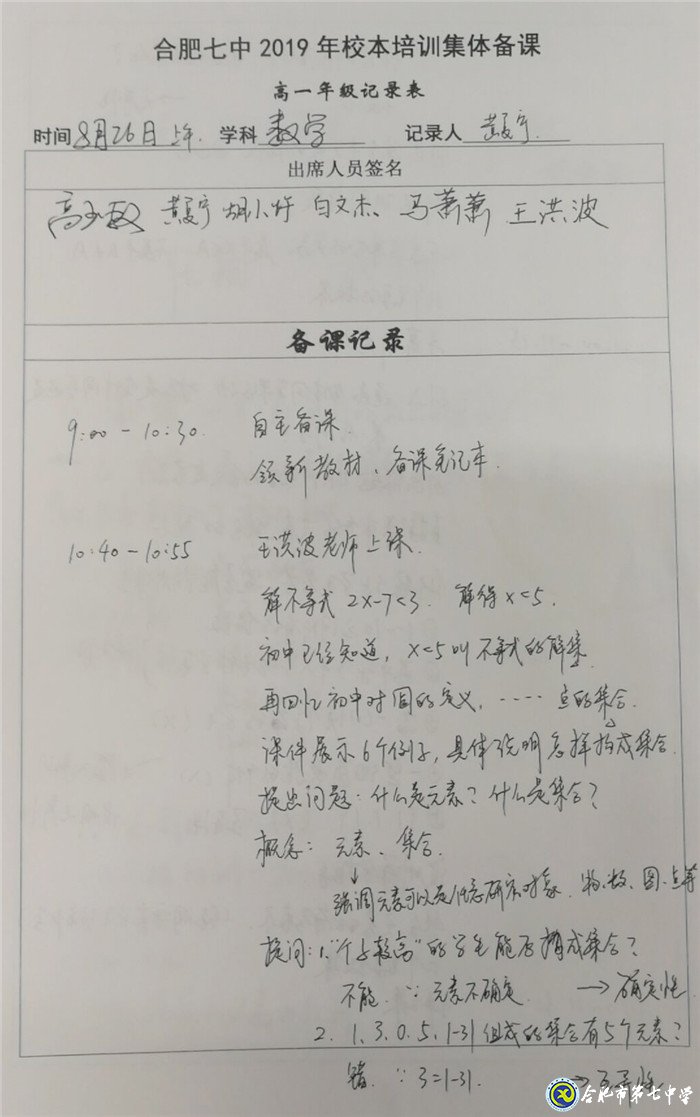 合肥七中 2019 年校本培训集体备课
高一年级记录表
时间 8月26日 上午. 学科 数学 记录人 黄夏宁.
出席人员签名
高玉敏 黄夏宁 胡小轩 白文杰、马萧萧 王洪波
备课记录
9:00 - 10:30. 自主备课.
领新教材、备课笔记本.
10:40 - 10:55 王洪波老师上课.
解不等式 2x-7<3. 解得 x<5.
初中已经知道, x<5叫不等式的解集.
再回忆初中对圆的定义, ···· 点的集合.
课件展示6个例子, 具体说明怎样构成集合.
提出问题: 什么是元素? 什么是集合?
概念: 元素、集合.
↓
强调元素可以是任意研究对象. 物、数、图、点等
提问: 1. "个子较高"的学生能否构成集合?
不能. ∵ 元素不确定. → 确定性
2. 1、3、0、5、|-3| 组成的集合有5个元素?
错. ∵ 3=|-3|. → 互异性.
合肥市第七中学